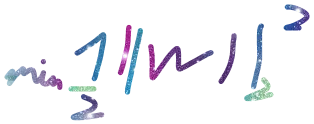 min 1/2 ||w||_2^2